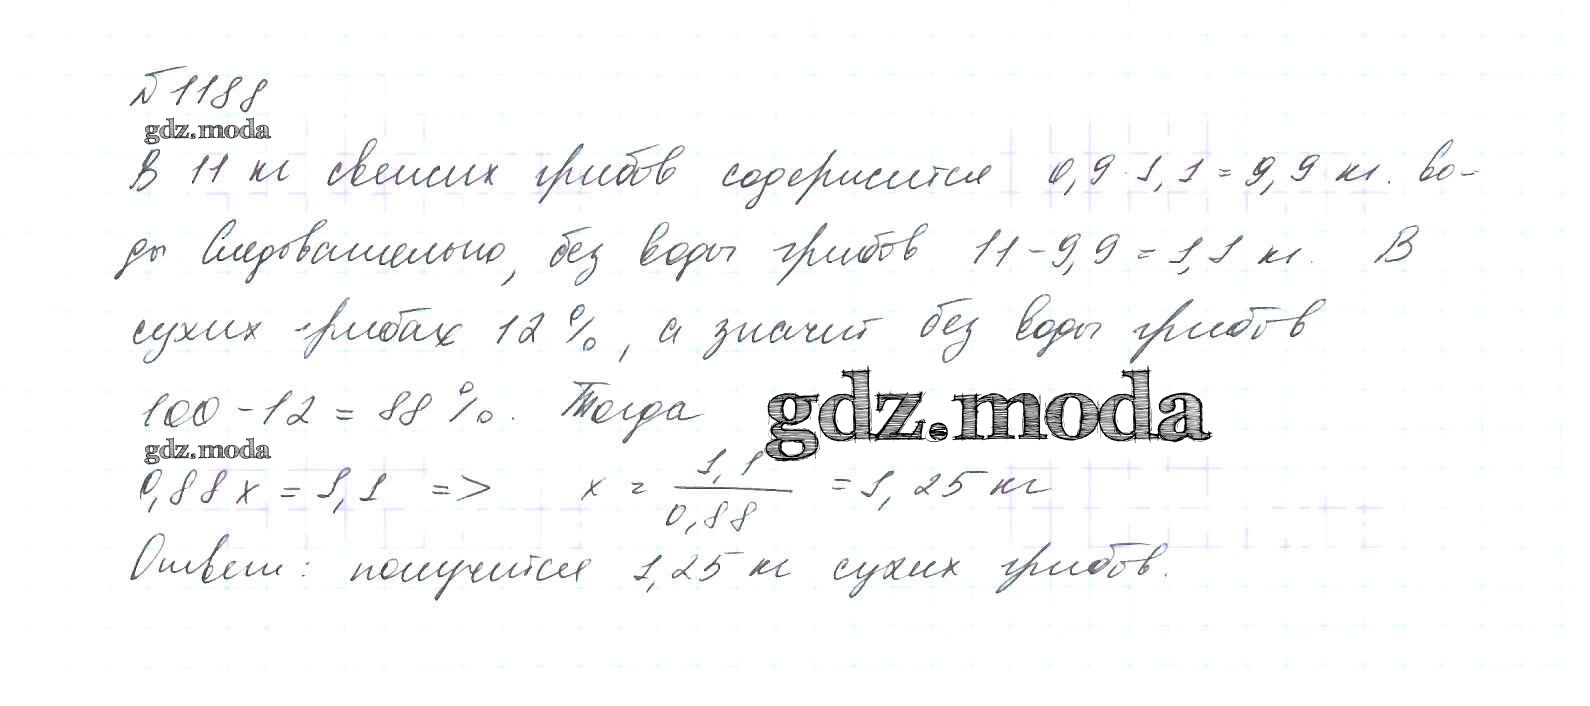 №1188
gdz.moda
В 11 кг свежих грибов содержится 0,9·1,1=9,9 кг. во-
ды Следовательно, без воды грибов 11-9,9=1,1 кг. В
сухих грибах 12%, а значит без воды грибов
100-12=88%. Тогда
gdz.moda
gdz.moda
0,88x=1,1 => x = 1,1/0,88 =1,25 кг
Ответ: получится 1,25 кг сухих грибов.